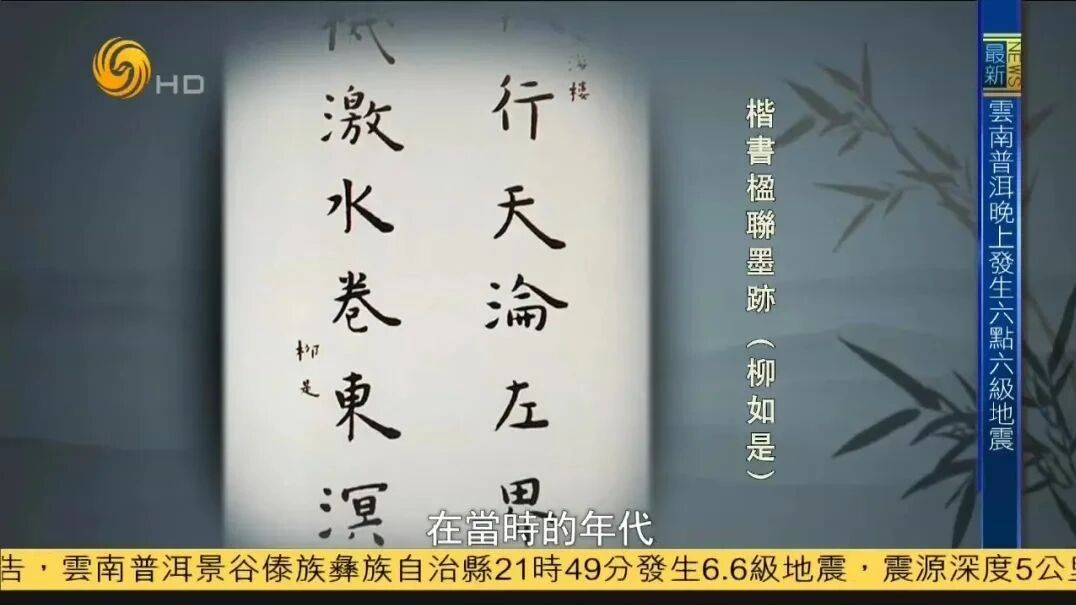 HD
NEWS
最新
雲南普洱晚上發生六點六級地震
楷書楹聯墨跡（柳如是）
海楼
行天淪左界
激水卷東溟
柳是
在當時的年代
告，雲南普洱景谷傣族彝族自治縣21時49分發生6.6級地震，震源深度5公里